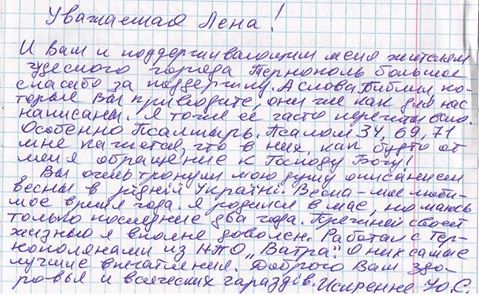 Уважаемая Лена!
И Вам и поддерживающим меня жителям
чудесного города Тернополь большое
спасибо за поддержку. А слова Библии ко-
торые Вы приводите, они же как для нас
написаны. Я тоже её часто перечитываю.
Особенно Псалтырь. Псалом 34, 69, 71
мне кажется, что в них, как будто от
меня обращение к Господу Богу!
Вы очень тронули мою душу описанием
весны в рідній Україні. Весна - мое люби-
мое время года. Я родился в мае, но маюсь
только последние два года. Прежней своей
жизнью я вполне доволен. Работал с Тер-
нополянами из НПО "Ватра". О них самые
лучшие впечатления. Доброго Вам здо-
ровья и всяческих гараздів. Искренне Ю.С.